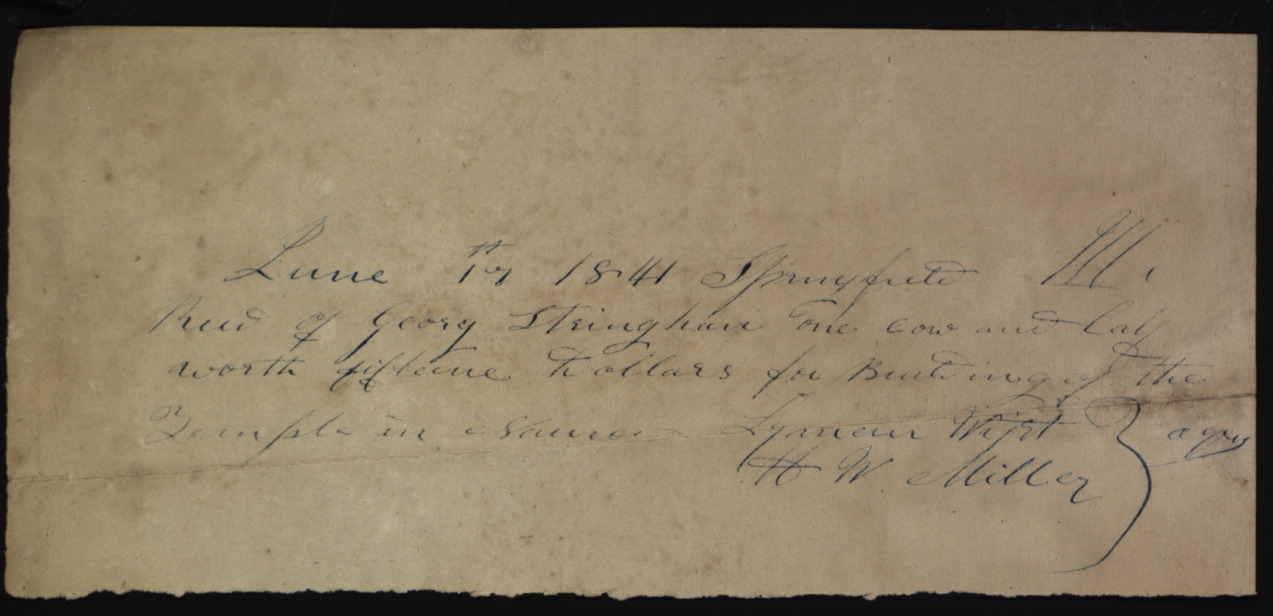 June 17th 1841 Springfield Ill.
Recd of Georg Stringham one cow and Calf
worth fiftane Dollars for Building of the
Temple in Nauvoo Lyman Wight
H W Miller